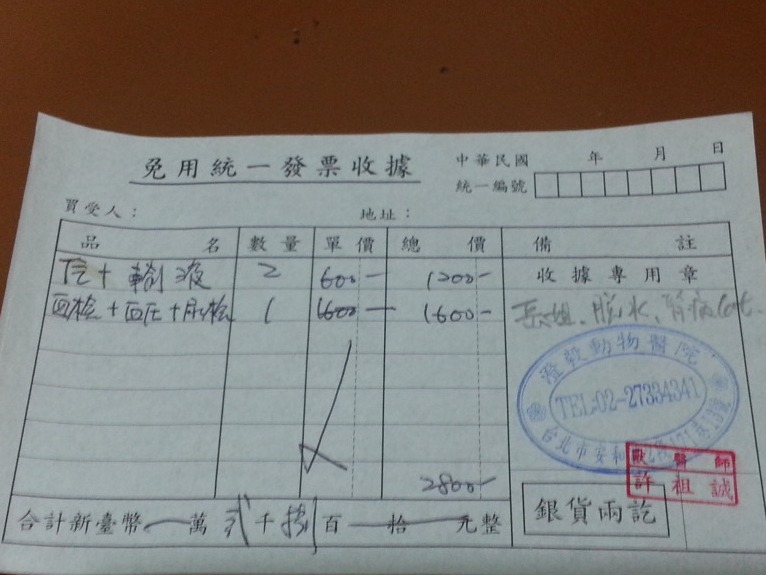 免用統一發票收據
中華民國 年 月 日
統一編號
買受人： 地址：
品名 數量 單價 總價 備註
+ 輸液 2 600- 1200- 收據專用章
血檢+血压+尿檢 1 1600- 1600- 長姐、脫水、腎病
澄毅動物醫院
TEL:02-27334341
台北市安和
獸醫師
許祖誠
2800-
合計新臺幣 萬 貳 千 捌 百 拾 元整 銀貨兩訖